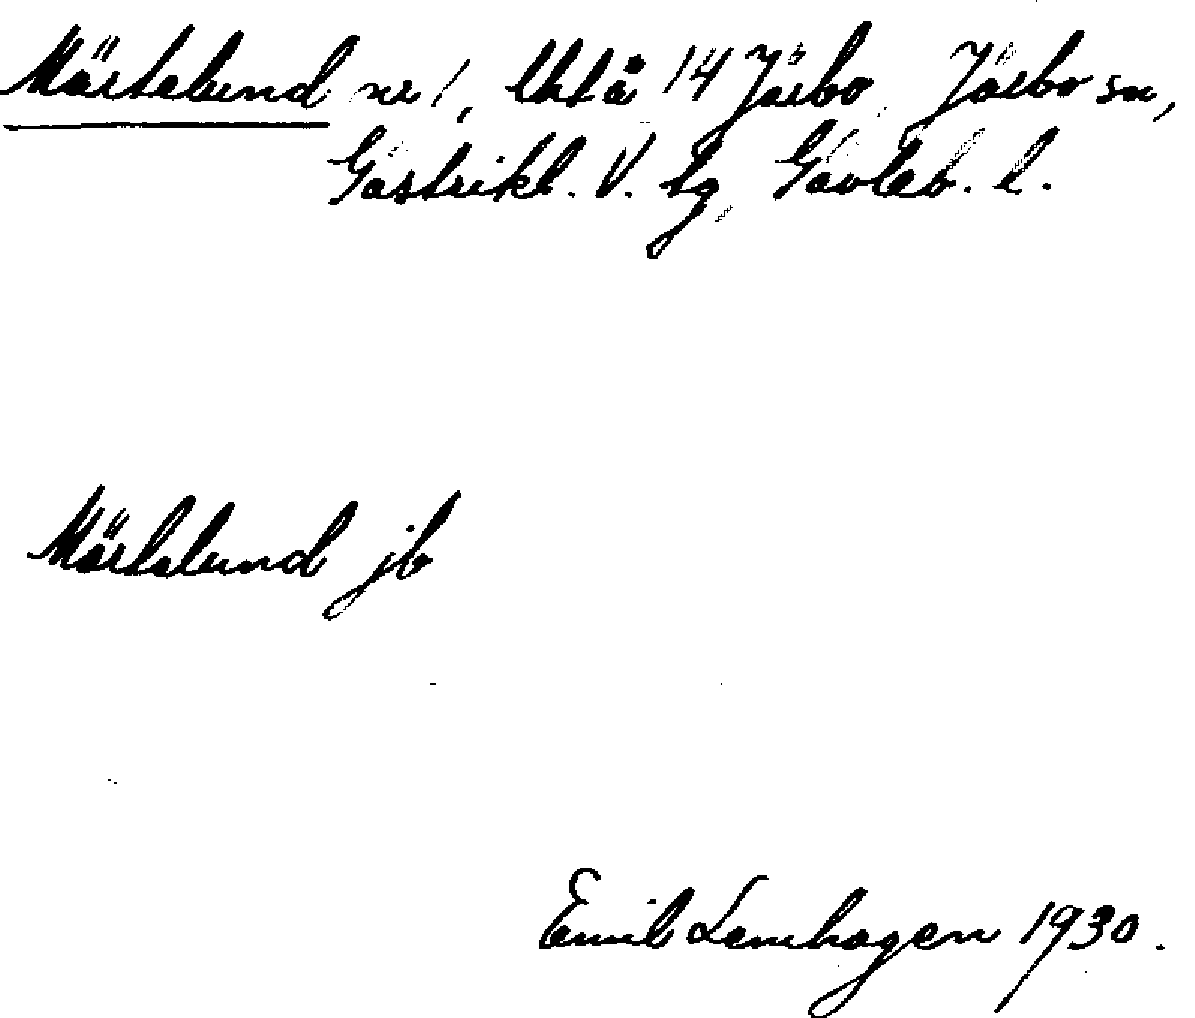 Märtelund nr 1, Utå 14 Järbo, Järbo sn,
Gästrikl. V. tg, Gävleb. l.
Märtelund jb
Emil Lenhagen 1930.